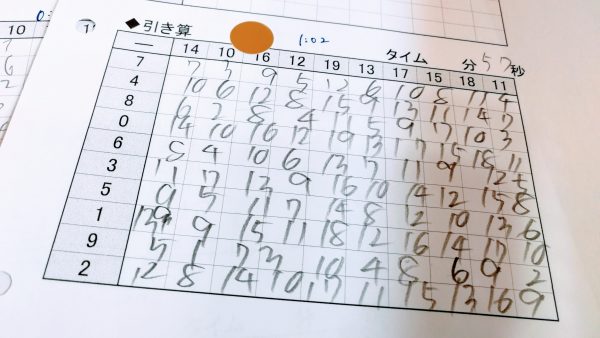 ◆引き算
1:02
タイム 分 57秒
— 14 10 16 12 19 13 17 15 18 11
7 7 3 9 5 12 6 10 8 11 4
4 10 6 12 8 15 9 13 11 14 7
8 6 2 8 4 11 5 9 7 10 3
0 14 10 16 12 19 13 17 15 18 11
6 8 4 10 6 13 7 11 9 12 5
3 11 7 13 9 16 10 14 12 15 8
5 9 5 11 7 14 8 12 10 13 6
1 13 9 15 11 18 12 16 14 17 10
9 5 1 7 3 10 4 8 6 9 2
2 12 8 14 10 17 11 15 13 16 9